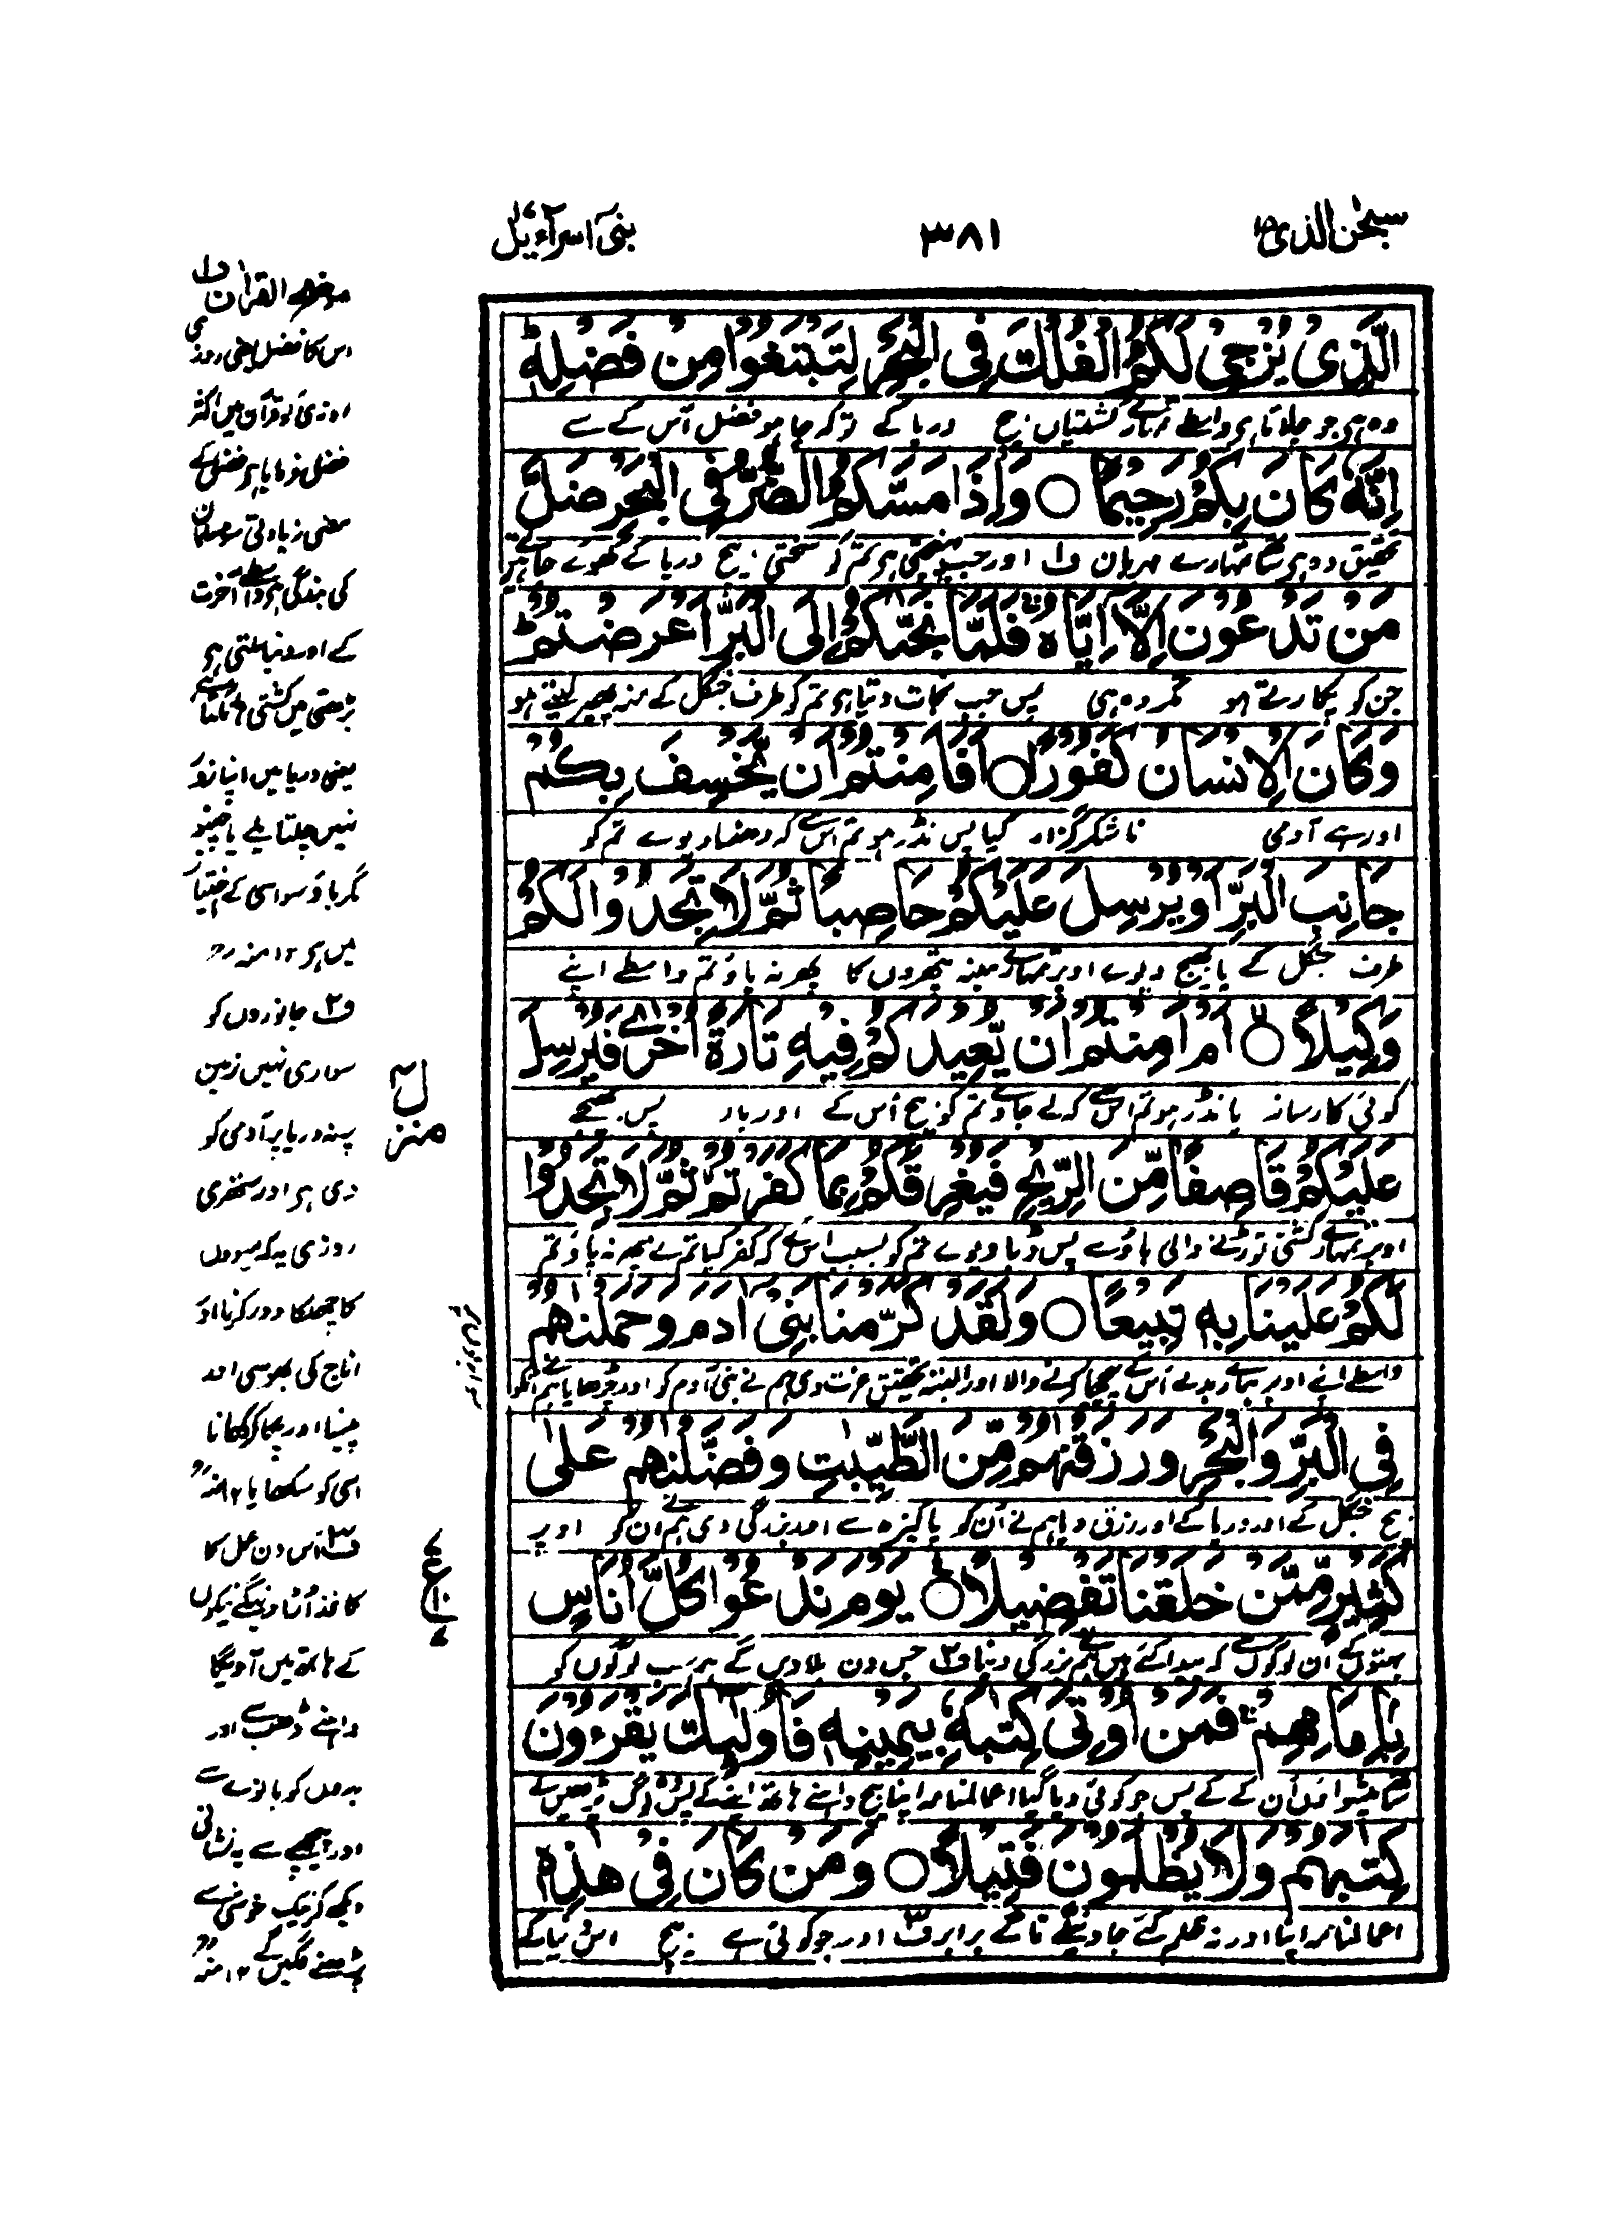 سبحٰن الذی ۱۵
۳۸۱
بنی اسرآءیل ۱۷
الَّذِی یُزْجِیْ لَكُمُ الْفُلْكَ فِی الْبَحْرِ لِتَبْتَغُوْا مِنْ فَضْلِهٖ ؕ
وہ ہی جو چلاتا ہی واسطے تمہارے کشتیاں بیچ دریا کے تو کہ چاہو فضل اُس کے سے
اِنَّهٗ كَانَ بِكُمْ رَحِیْمًا ○ وَاِذَا مَسَّكُمُ الضُّرُّ فِی الْبَحْرِ ضَلَّ
تحقیق وہ ہی ساتھ تمہارے مہربان ف۱ اور جب پہنچتی ہی تم کو سختی بیچ دریا کے کھوے جاتے ہیں
مَنْ تَدْعُوْنَ اِلَّاۤ اِیَّاهُ ۚ فَلَمَّا نَجّٰىكُمْ اِلَی الْبَرِّ اَعْرَضْتُمْ ؕ
جن کو پکارتے ہو مگر وہ ہی پس جب نجات دیتا ہی تم کو طرف جنگل کے منہ پھیر لیتے ہو
وَكَانَ الْاِنْسَانُ كَفُوْرًا ○ اَفَاَمِنْتُمْ اَنْ یَّخْسِفَ بِكُمْ
اور ہے آدمی ناشکرگزار کیا پس نڈر ہو تم اس سے کہ دھنسا دیوے تم کو
جَانِبَ الْبَرِّ اَوْ یُرْسِلَ عَلَیْكُمْ حَاصِبًا ثُمَّ لَا تَجِدُوْا لَكُمْ
طرف جنگل کے یا بھیج دیوے اوپر تمہارے مینہ پتھروں کا پھر نہ پاؤ تم واسطے اپنے
وَكِیْلًا ○ اَمْ اَمِنْتُمْ اَنْ یُّعِیْدَكُمْ فِیْهِ تَارَةً اُخْرٰی فَیُرْسِلَ
کوئی کارساز یا نڈر ہو تم اس سے کہ لے جاوے تم کو بیچ اُس کے اور بار پس بھیجے
عَلَیْكُمْ قَاصِفًا مِّنَ الرِّیْحِ فَیُغْرِقَكُمْ بِمَا كَفَرْتُمْ ثُمَّ لَا تَجِدُوْا
اوپر تمہارے کشتی توڑنے والی باؤ سے پس ڈبا دیوے تم کو بسبب اس کے کہ کفر کیا تم نے پھر نہ پاؤ تم
لَكُمْ عَلَیْنَا بِهٖ تَبِیْعًا ○ وَلَقَدْ كَرَّمْنَا بَنِیْۤ اٰدَمَ وَحَمَلْنٰهُمْ
واسطے اپنے اوپر ہمارے بدلے اُس کے پیچھا کرنے والا اور البتہ تحقیق عزت دی ہم نے بنی آدم کو اور چڑھایا ہم نے انکو
فِی الْبَرِّ وَالْبَحْرِ وَرَزَقْنٰهُمْ مِّنَ الطَّیِّبٰتِ وَفَضَّلْنٰهُمْ عَلٰی
بیچ جنگل کے اور دریا کے اور رزق دیا ہم نے اُن کو پاکیزہ سے اور بزرگی دی ہم نے ان کو اوپر
كَثِیْرٍ مِّمَّنْ خَلَقْنَا تَفْضِیْلًا ○ یَوْمَ نَدْعُوْا كُلَّ اُنَاسٍۭ
بہتوں کے اُن لوگوں سے کہ پیدا کئے ہیں ہم نے بزرگی دینا ف۲ جس دن بلاویں گے ہم سب لوگوں کو
بِاِمَامِهِمْ ۚ فَمَنْ اُوْتِیَ كِتٰبَهٗ بِیَمِیْنِهٖ فَاُولٰٓىِٕكَ یَقْرَءُوْنَ
ساتھ پیشواؤں اُن کے کے پس جو کوئی دیا گیا اعمالنامہ اپنا بیچ داہنے ہاتھ اپنے کے پس یہ لوگ پڑھیں گے
كِتٰبَهُمْ وَلَا یُظْلَمُوْنَ فَتِیْلًا ○ وَمَنْ كَانَ فِیْ هٰذِهٖۤ
اعمالنامہ اپنا اور نہ ظلم کئے جاوینگے تاگے برابر ف۳ اور جو کوئی ہے بیچ اس کے
موضح القرآن ف۱
اس کا فضل یعنی روزی
روزی کو قرآن میں اکثر
فضل فرمایا ہی فضل کے
معنی زیادتی سو مسلمان
کی بندگی ہی واسطے آخرت
کے اور دنیا ملتی ہی
یعنی دریا میں اپنا زور
نہیں چلتا
مگر باؤ سو اسی کے اختیار
میں ہی ۱۲ منہ رح
ف۲ جانوروں کو
سواری نہیں زمین
پر نہ دریا پر آدمی کو
دی ہی اور ستھری
روزی یہ کہ میووں
کا چھلکا دور کرنا اور
اناج کی بھوسی اور
پیسنا اور پکا کر کھانا
اسی کو سکھایا ۱۲ منہ رح
ف۳ اُس دن عمل کا
کاغذ اُڑا دینگے نیکوں
کے ہاتھ میں آویگا
داہنے ڈھب اور
بدوں کو بائیں سے
اور پیچھے سے یہ نشانی
دیکھ کر نیک خوشی سے
پڑھنے لگیں گے ۱۲ منہ رح
منزل ۴
ع